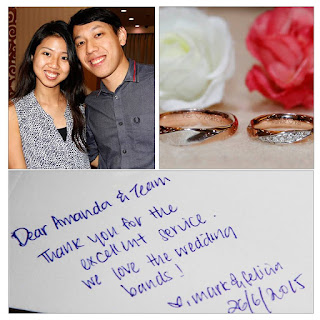 Dear Amanda & Team
Thank you for the
excellent service.
we love the wedding
bands!
♡, mark & felicia
26/6/2015